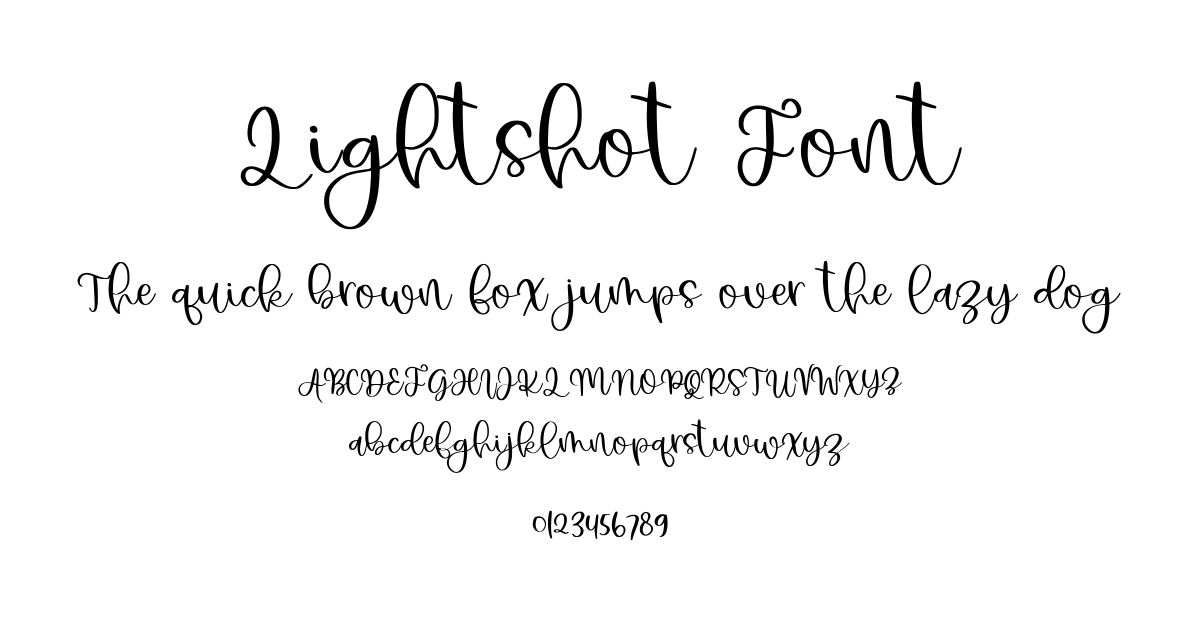 Lightshot Font
The quick brown fox jumps over the lazy dog
ABCDEFGHIJKLMNOPQRSTUVWXYZ
abcdefghijklmnopqrstuvwxyz
0123456789